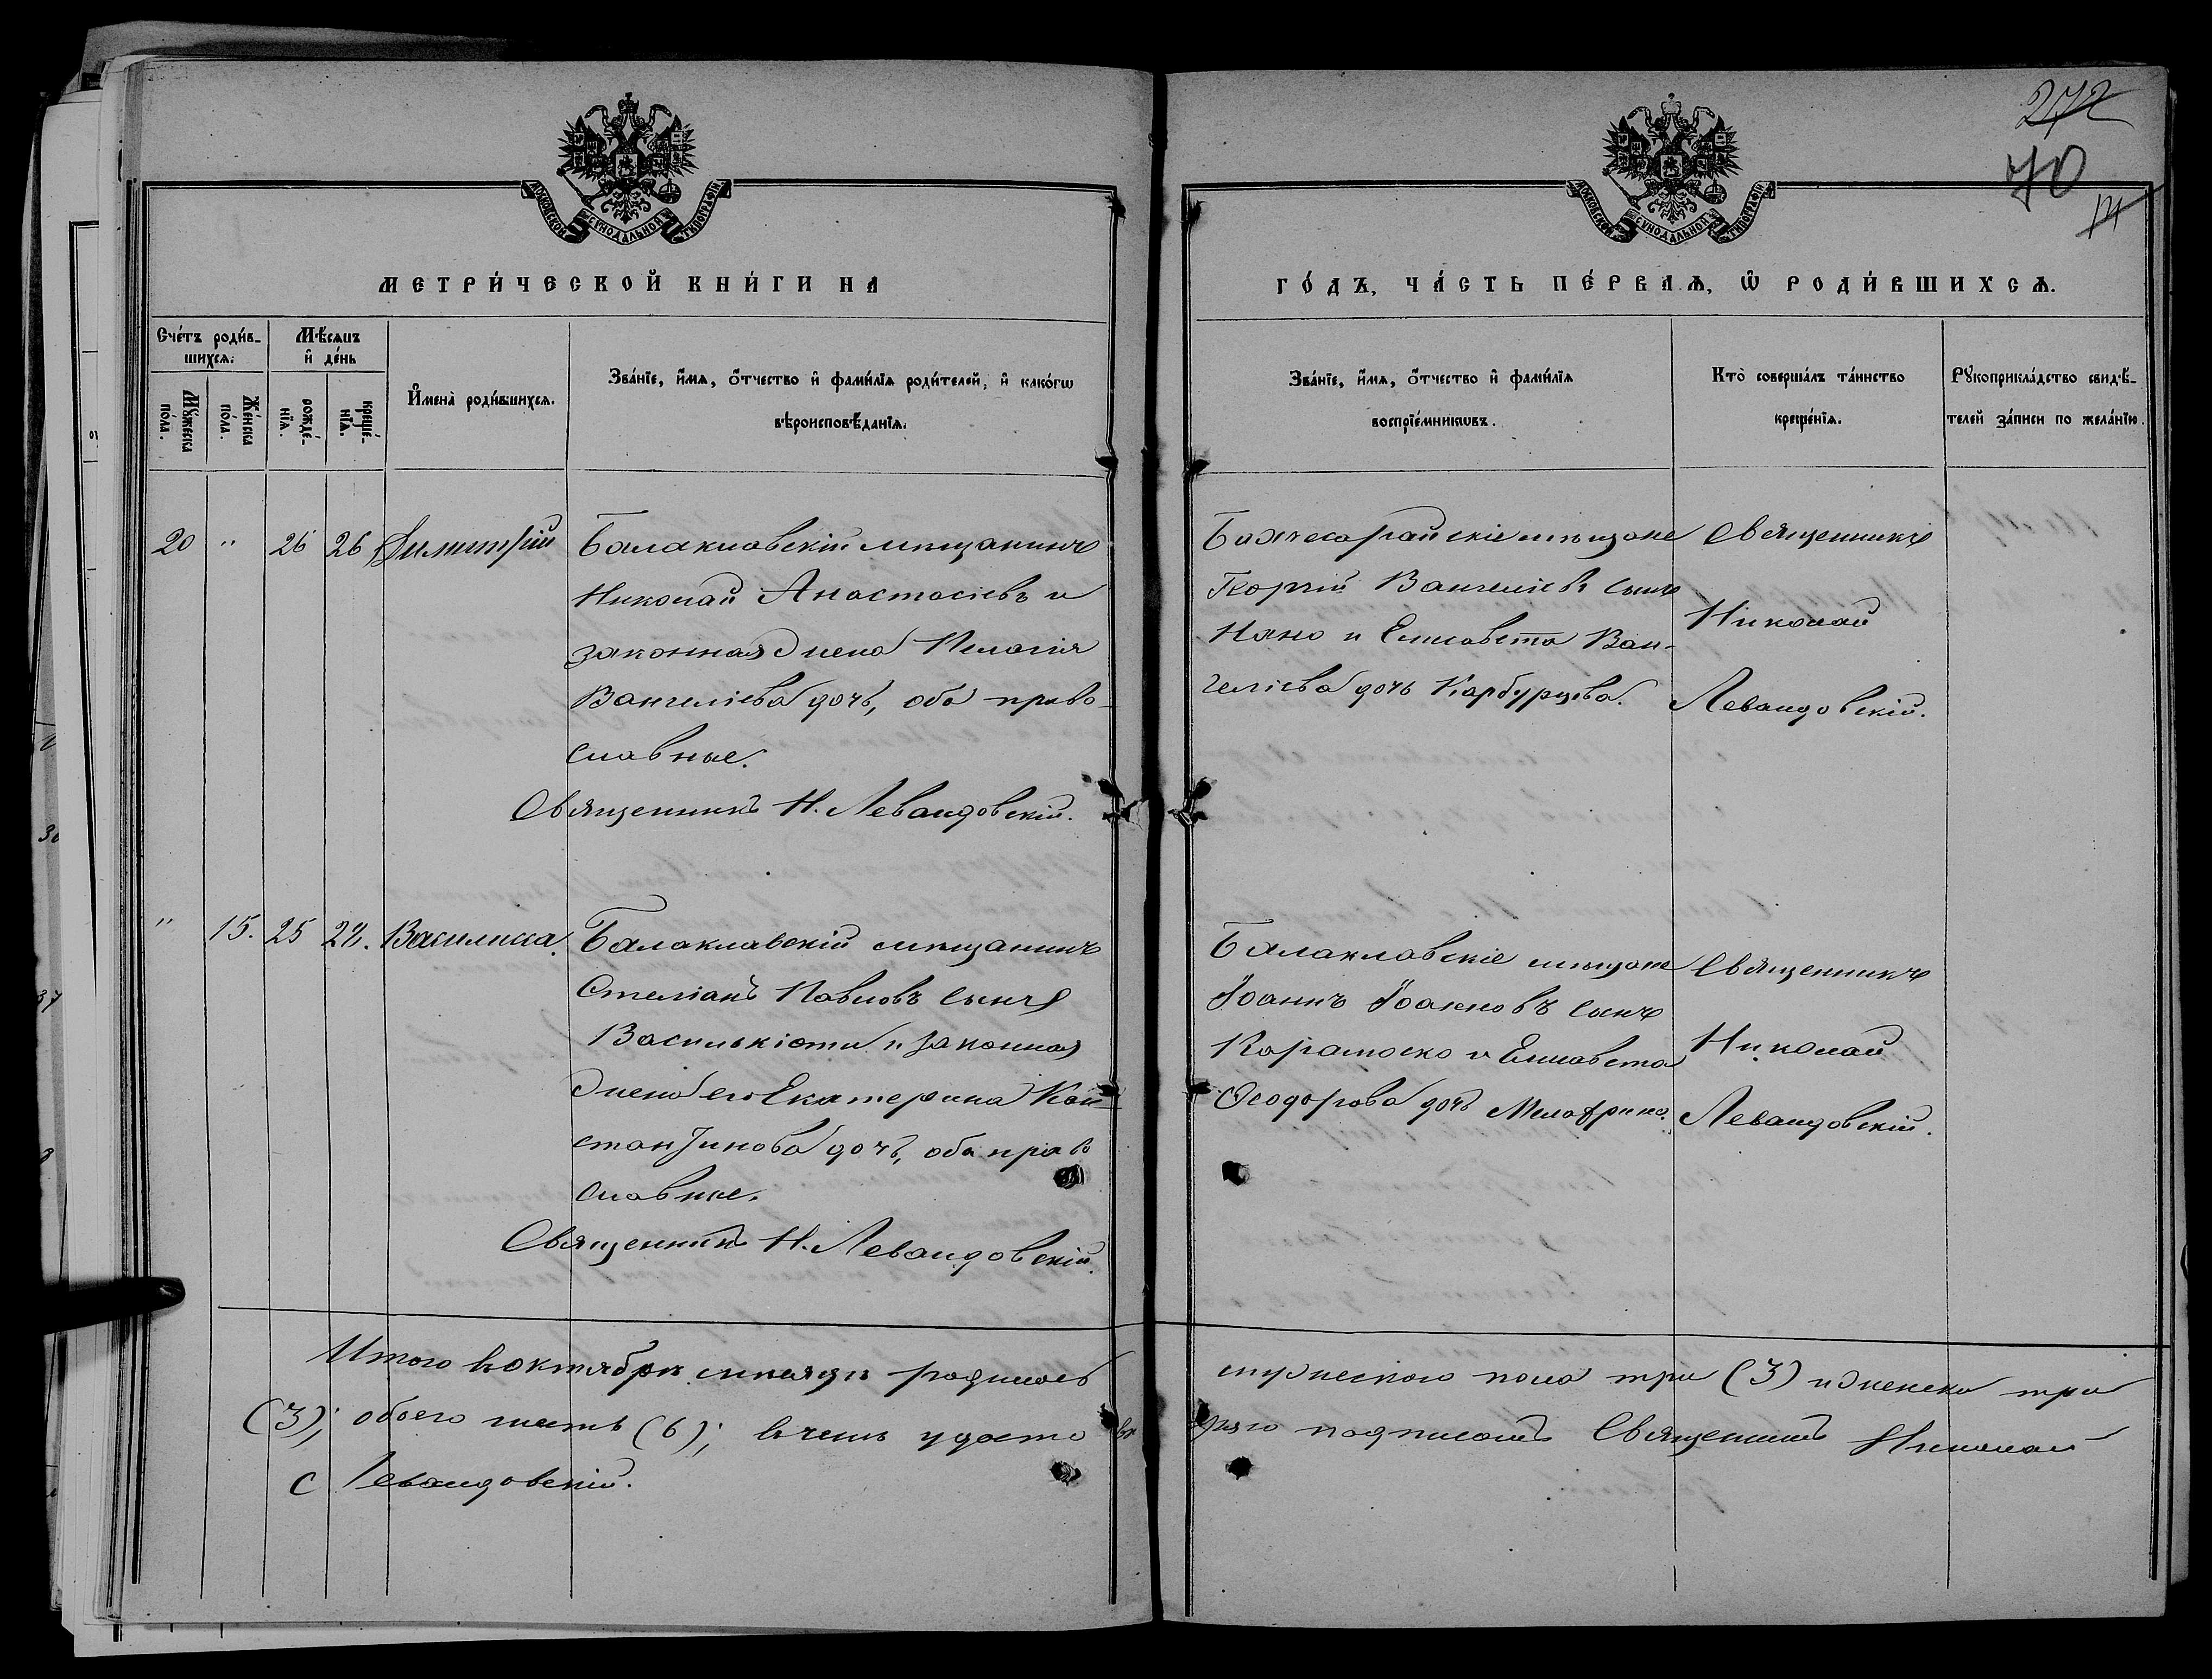 272
70
МОСКОВСКОЙ СѴНОДАЛЬНОЙ ТИПОГРАФІИ
МОСКОВСКОЙ СѴНОДАЛЬНОЙ ТИПОГРАФІИ
МЕТРИ́ЧЕСКОЙ КНИ́ГИ НА
ГО́ДЪ, ЧА́СТЬ ПЕ́РВАѦ, Ѡ҆ РОДИ́ВШИХСѦ.
Сче́тъ роди́в-
шихсѧ.
Мѣ́сѧцъ
и҆ де́нь
Мꙋ́жеска
по́ла.
Же́нска
по́ла.
рожде́-
нїѧ.
креще́-
нїѧ.
И҆мена̀ роди́вшихсѧ.
Зва́нїе, и҆́мѧ, ѻ҆́тчество и҆ фами́лїѧ роди́телей, и҆ како́гѡ
вѣроисповѣ́данїѧ.
Зва́нїе, и҆́мѧ, ѻ҆́тчество и҆ фами́лїѧ
воспрїе́мникѡвъ.
Кто̀ соверша́лъ та́инство
креще́нїѧ.
Рꙋкоприкла́дство свидѣ́-
телей за́писи по жела́нїю.
20 " 26 26 Димитрій
Балаклавскій мѣщанинъ
Николай Анастасіевъ и
законная жена Пелагія
Вангеліева дочь, оба право-
славные.
Священникъ Н. Левандовскій.
Бахчесарайскіе мѣщане
Георгій Вангеліевъ сынъ
Нано и Елисавета Ван-
геліева дочь
Священникъ
Николай
Левандовскій.
" 15. 25 28. Василисса.
Балаклавскій мѣщанинъ
Стеліанъ Павловъ сынъ
Василькіоти и законная
жена его Екатерина Кон-
стантинова дочь, оба право
славные.
Священникъ Н. Левандовскій.
Балаклавскіе мѣщане
Іоаннъ Іоанновъ сынъ
и Елисавета
Ѳеодорова дочь
Священникъ
Николай
Левандовскій.
Итого въ октябрѣ мѣсяцѣ родилось мужескаго пола три (3) и женска три
(3); обоего шесть (6); въ чемъ удостовѣряю подписомъ Священникъ Николай
Левандовскій.